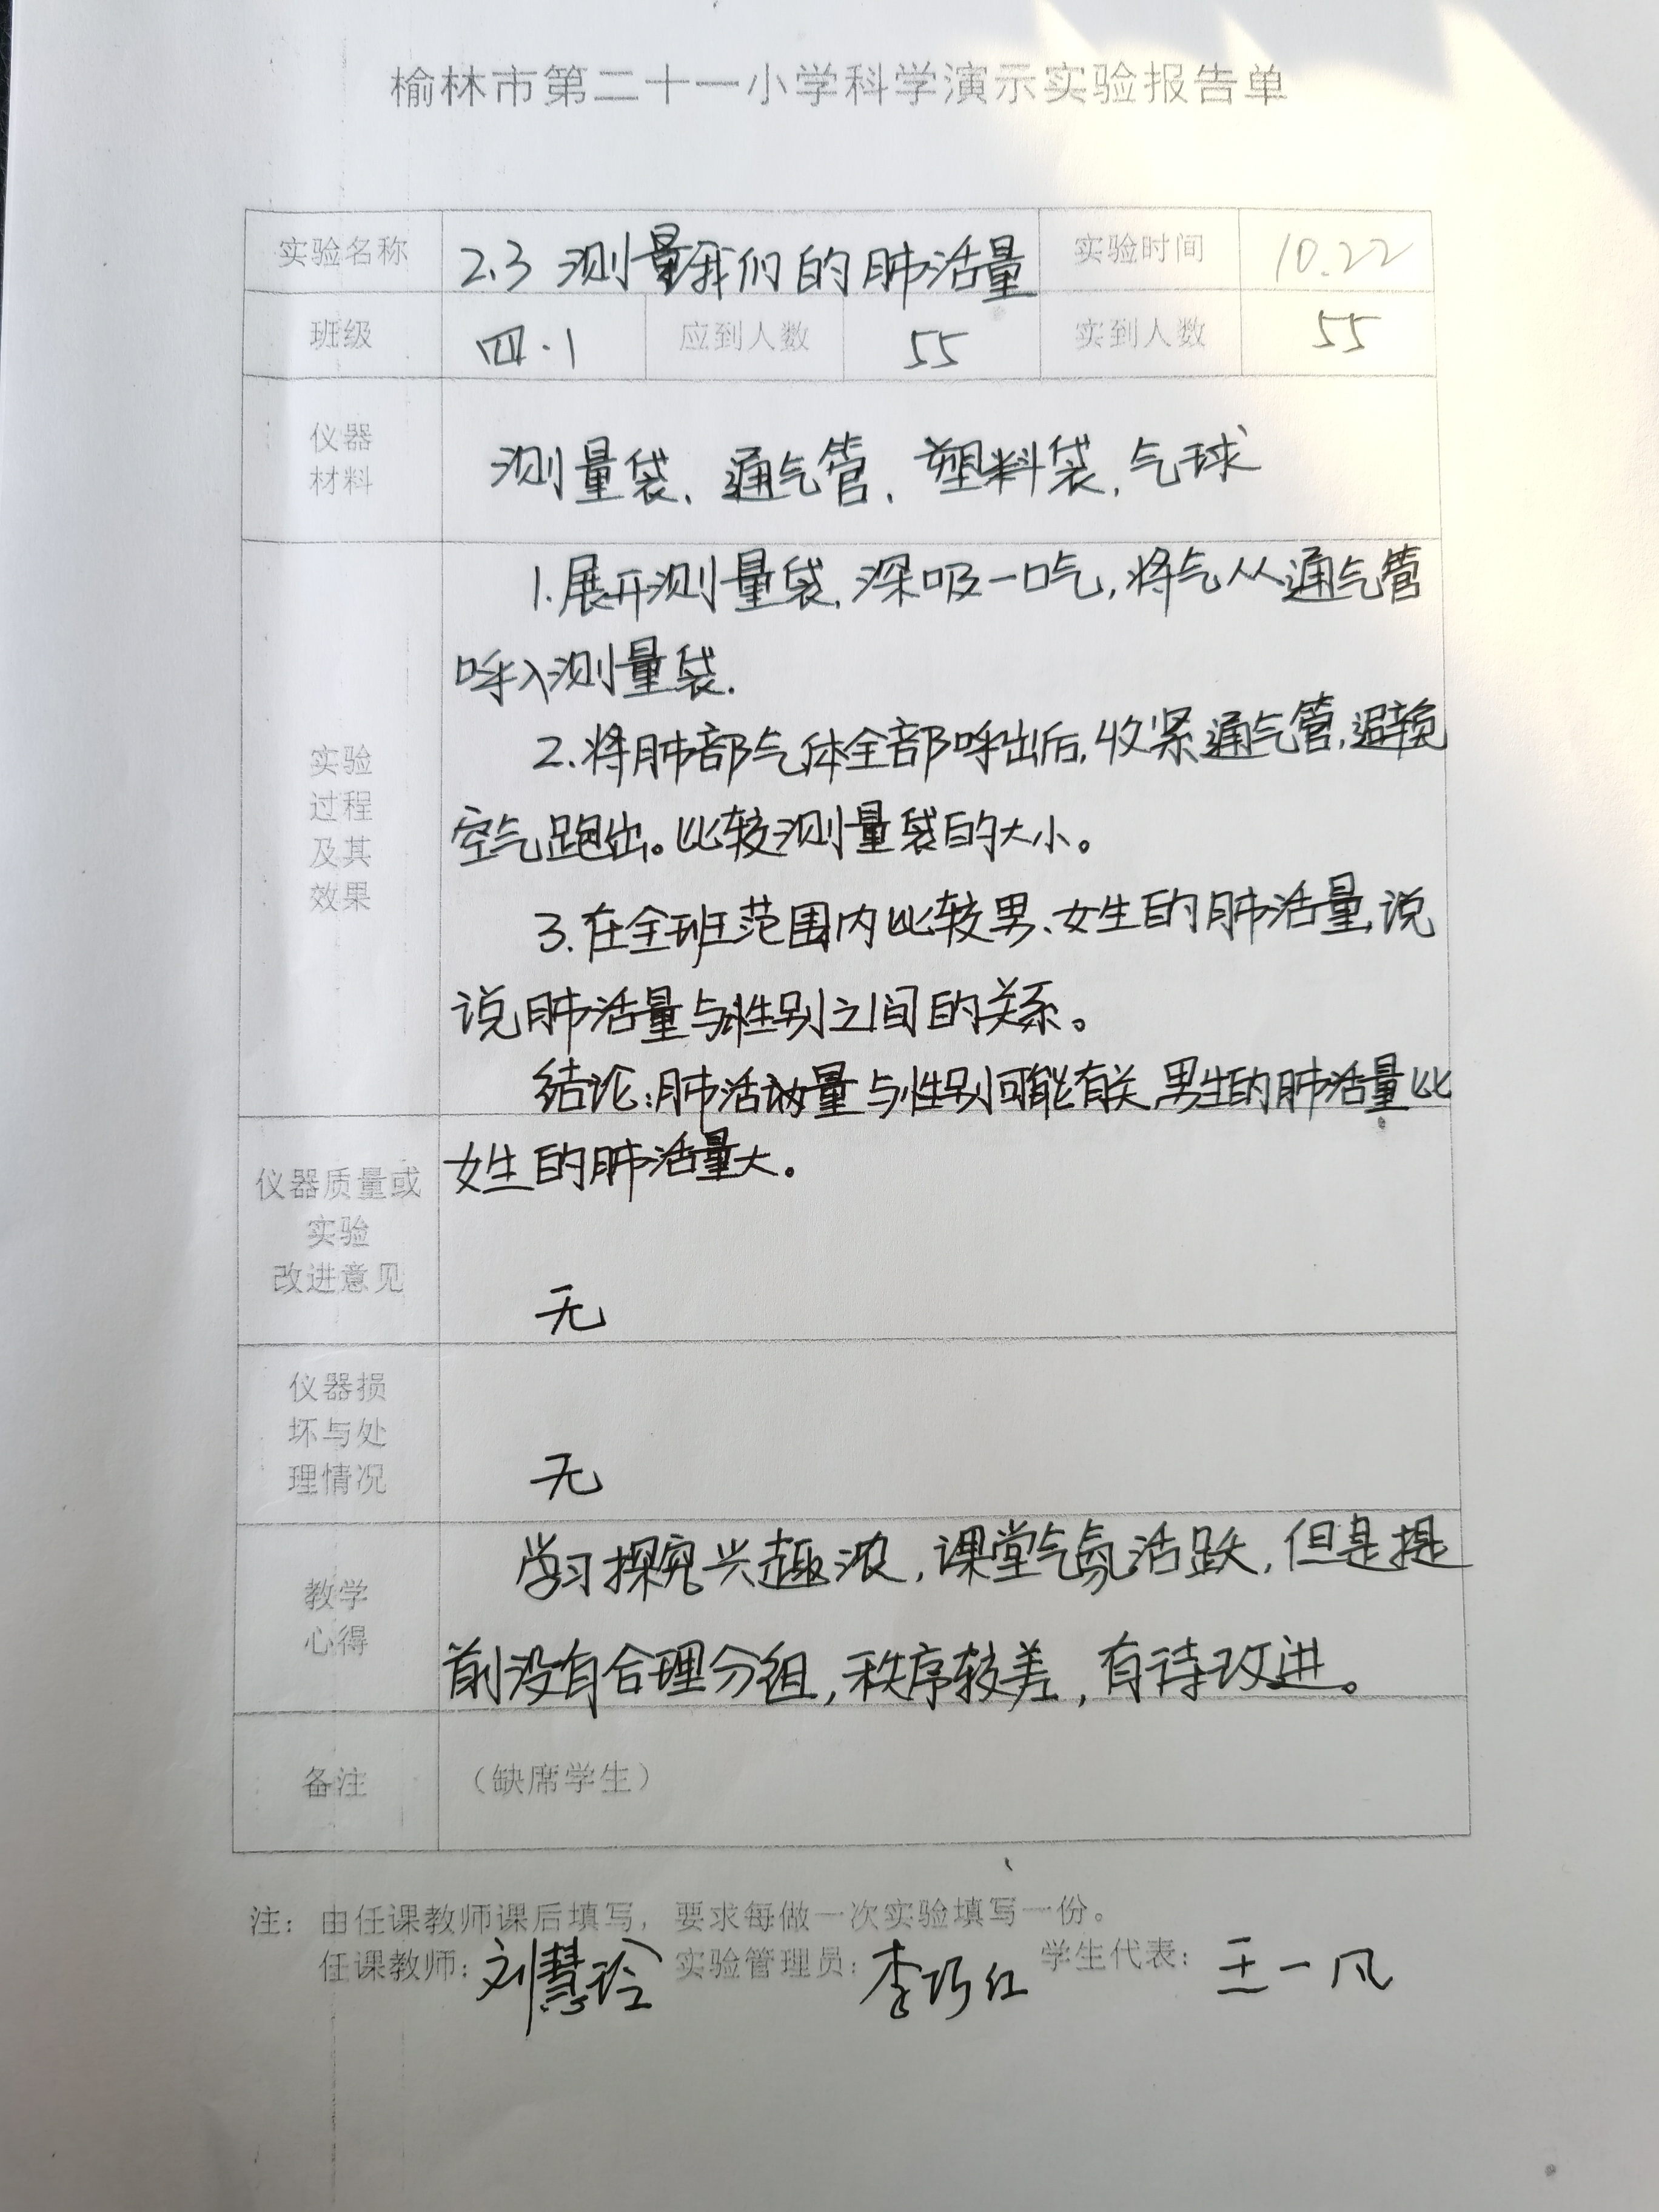 榆林市第二十一小学科学演示实验报告单
实验名称 2.3 测量我们的肺活量 实验时间 10.22
班级 四.1 应到人数 55 实到人数 55
仪器
材料
测量袋、通气管、塑料袋、气球
实验
过程
及其
效果
1.展开测量袋,深吸一口气,将气从通气管
呼入测量袋.
2.将肺部气体全部呼出后,收紧通气管,避免
空气跑出。比较测量袋的大小。
3.在全班范围内比较男、女生的肺活量,说
说肺活量与性别之间的关系。
结论:肺活动量与性别可能有关,男生的肺活量比
女生的肺活量大。
仪器质量或
实验
改进意见
无
仪器损
坏与处
理情况
无
教学
心得
学习探究兴趣浓,课堂气氛活跃,但是提
前没有合理分组,秩序较差,有待改进。
备注 (缺席学生)
注: 由任课教师课后填写,要求每做一次实验填写一份。
任课教师: 刘慧玲 实验管理员: 李巧红 学生代表: 王一凡